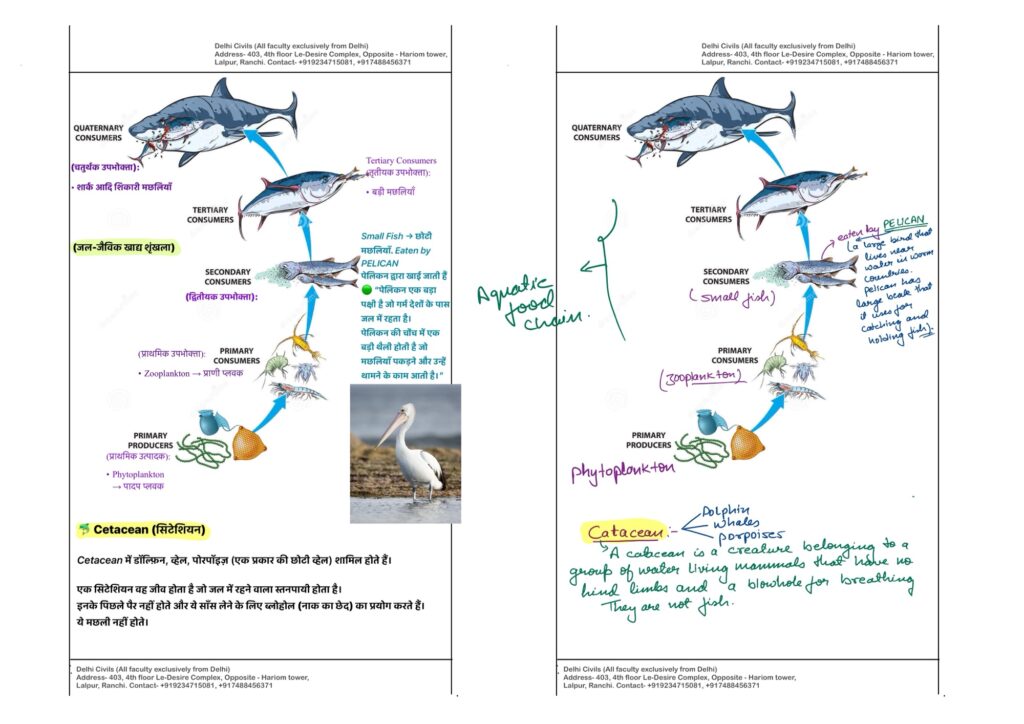 Delhi Civils (All faculty exclusively from Delhi)
Address- 403, 4th floor Le-Desire Complex, Opposite - Hariom tower,
Lalpur, Ranchi. Contact- +919234715081, +917488456371
QUATERNARY
CONSUMERS
(चतुर्थक उपभोक्ता):
• शार्क आदि शिकारी मछलियाँ
Tertiary Consumers
(तृतीयक उपभोक्ता):
• बड़ी मछलियाँ
TERTIARY
CONSUMERS
(जल-जैविक खाद्य शृंखला)
Small Fish → छोटी
मछलियाँ. Eaten by
PELICAN
पेलिकन द्वारा खाई जाती हैं
"पेलिकन एक बड़ा
पक्षी है जो गर्म देशों के पास
जल में रहता है।
पेलिकन की चोंच में एक
बड़ी थैली होती है जो
मछलियाँ पकड़ने और उन्हें
थामने के काम आती है।"
SECONDARY
CONSUMERS
(द्वितीयक उपभोक्ता):
(प्राथमिक उपभोक्ता):
PRIMARY
CONSUMERS
• Zooplankton → प्राणी प्लवक
PRIMARY
PRODUCERS
(प्राथमिक उत्पादक):
• Phytoplankton
→ पादप प्लवक
Cetacean (सिटेशियन)
Cetacean में डॉल्फ़िन, व्हेल, पोरपॉइज़ (एक प्रकार की छोटी व्हेल) शामिल होते हैं।
एक सिटेशियन वह जीव होता है जो जल में रहने वाला स्तनपायी होता है।
इनके पिछले पैर नहीं होते और ये साँस लेने के लिए ब्लोहोल (नाक का छेद) का प्रयोग करते हैं।
ये मछली नहीं होते।
Delhi Civils (All faculty exclusively from Delhi)
Address- 403, 4th floor Le-Desire Complex, Opposite - Hariom tower,
Lalpur, Ranchi. Contact- +919234715081, +917488456371
Delhi Civils (All faculty exclusively from Delhi)
Address- 403, 4th floor Le-Desire Complex, Opposite - Hariom tower,
Lalpur, Ranchi. Contact- +919234715081, +917488456371
QUATERNARY
CONSUMERS
TERTIARY
CONSUMERS
eaten by PELICAN
(a large bird that
lives near
water in worm
countries.
Pelican has
large beak that
it uses for
catching and
holding fish).
SECONDARY
CONSUMERS
(small fish)
Aquatic
food
chain.
PRIMARY
CONSUMERS
(zooplankton)
PRIMARY
PRODUCERS
phytoplankton
Catacean :-
Dolphin
whales
porpoises
A catacean is a creature belonging to a
group of water living mammals that have no
hind limbs and a blowhole for breathing
They are not fish.
Delhi Civils (All faculty exclusively from Delhi)
Address- 403, 4th floor Le-Desire Complex, Opposite - Hariom tower,
Lalpur, Ranchi. Contact- +919234715081, +917488456371